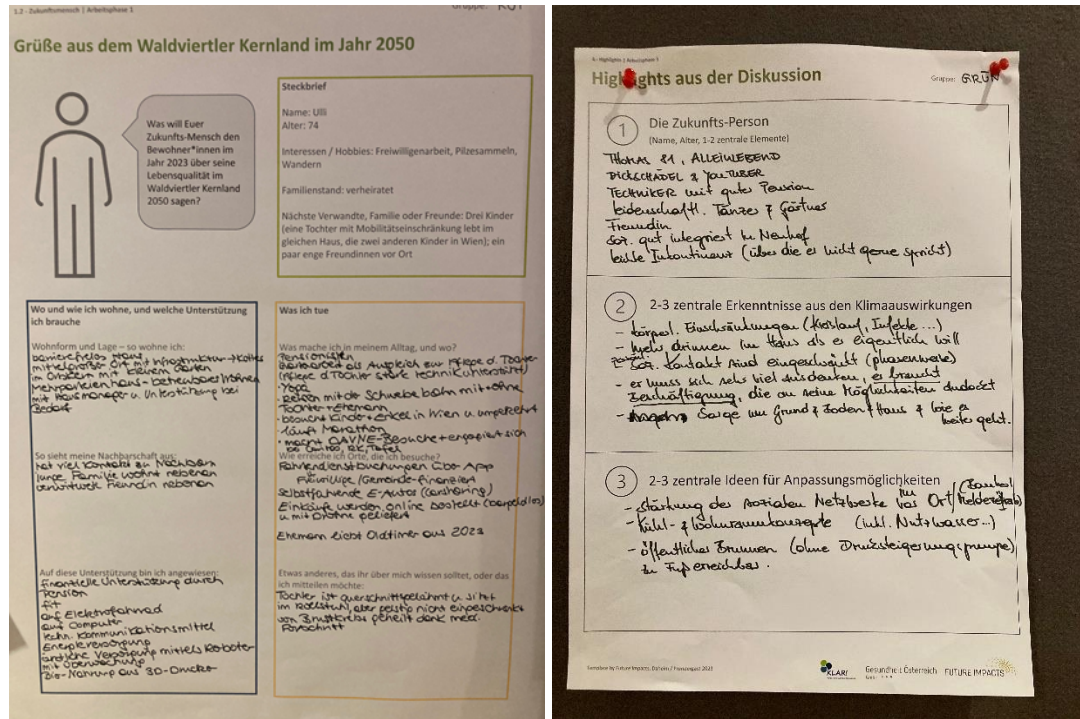 1.2 - Zukunftsmensch | Arbeitsphase 1
Gruppe: ROT
Grüße aus dem Waldviertler Kernland im Jahr 2050
Was will Euer
Zukunfts-Mensch den
Bewohner*innen im
Jahr 2023 über seine
Lebensqualität im
Waldviertler Kernland
2050 sagen?
Steckbrief
Name: Ulli
Alter: 74
Interessen / Hobbies: Freiwilligenarbeit, Pilzesammeln,
Wandern
Familienstand: verheiratet
Nächste Verwandte, Familie oder Freunde: Drei Kinder
(eine Tochter mit Mobilitätseinschränkung lebt im
gleichen Haus, die zwei anderen Kinder in Wien); ein
paar enge Freundinnen vor Ort
Wo und wie ich wohne, und welche Unterstützung
ich brauche
Wohnform und Lage – so wohne ich:
barrierefreies Haus
mittelgroßer Ort mit Infrastruktur
im Ortskern mit kleinem Garten
Mehrparteienhaus - betreubares Wohnen
mit Hausmanager u. Unterstützung bei
Bedarf
So sieht meine Nachbarschaft aus:
hat viel Kontakt zu Nachbarn
junge Familie wohnt nebenan
verwitwete Freundin nebenan
Auf diese Unterstützung bin ich angewiesen:
Finanzielle Unterstützung durch
Pension
fit
auf Elektrofahrrad
auf Computer
techn. Kommunikationsmittel
Energieversorgung
ärztliche Versorgung mittels Roboter
mit Überwachung
Bio-Nahrung aus 3D-Drucker
Was ich tue
Was mache ich in meinem Alltag, und wo?
Pensionistin
Gartenarbeit als Ausgleich zur Pflege d. Tochter
(Pflege d. Tochter stark technikunterstützt)
- Yoga
- Reisen mit der Schwebebahn mit + ohne
Tochter + Ehemann
- besucht Kinder + Enkel in Wien u umgekehrt
- läuft Marathon
- macht DAVNE-Besuche + engagiert sich
bei Caritas, RK, Tafel
Wie erreiche ich Orte, die ich besuche?
Fahrtendienstbuchungen über App
Freiwillige/Gemeinde-finanziert
selbstfahrende E-Autos (Carsharing)
Einkäufe werden online bestellt (bargeldlos)
u mit Drohne geliefert
Ehemann liebt Oldtimer aus 2023
Etwas anderes, das ihr über mich wissen solltet, oder das
ich mitteilen möchte:
Tochter ist querschnittgelähmt u sitzt
im Rollstuhl, aber geistig nicht eingeschränkt
von Brustkrebs geheilt dank med.
Fortschritt
4 - Highlights | Arbeitsphase 1
Highlights aus der Diskussion
Gruppe: GRÜN
1 Die Zukunfts-Person
(Name, Alter, 1-2 zentrale Elemente)
THOMAS 81, ALLEINLEBEND
DICKSCHÄDEL & YOUTUBER
TECHNIKER mit guter Pension
leidenschaftl. Tänzer & Gärtner
Freundin
soz. gut integriert in Neuhof
leichte Inkontinent (über die er nicht gerne spricht)
2 2-3 zentrale Erkenntnisse aus den Klimaauswirkungen
- körperl. Einschränkungen (Kreislauf, Infekte ...)
- mehr drinnen im Haus als er eigentlich will
- soz. Kontakt sind eingeschränkt (phasenweise)
- er muss sich sehr viel ausdenken, er braucht
Beschäftigung, die an seine Möglichkeiten andockt
- Sorge um Grund & Boden & Haus & wie es
weiter geht.
3 2-3 zentrale Ideen für Anpassungsmöglichkeiten
- Stärkung des sozialen Netzwerks vor Ort
- Kühl- & Wohnraumkonzepte (inkl. Nutzwasser...)
- öffentlicher Brunnen (ohne Drucksteigerungspumpe)
zu Fuß erreichbar.
KLAR!
Gesundheit Österreich
FUTURE IMPACTS